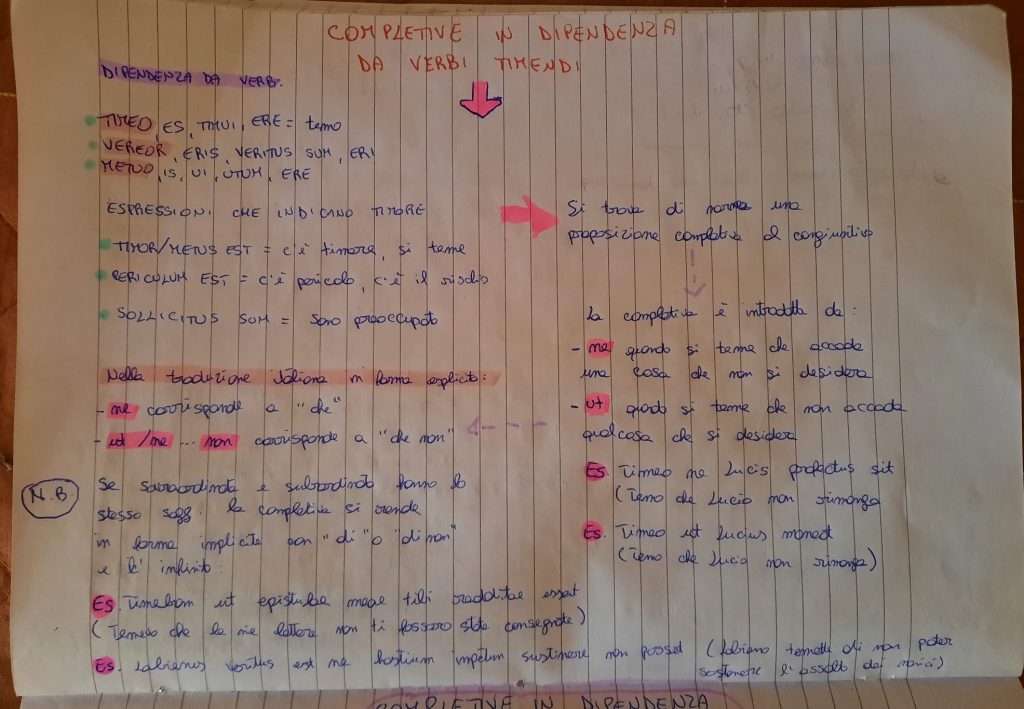 COMPLETIVE IN DIPENDENZA
DA VERBI TIMENDI
DIPENDENZA DA VERBI.
TIMEO, ES, TIMUI, ERE = temo
VEREOR, ERIS, VERITUS SUM, ERI
METUO, IS, UI, UTUM, ERE
ESPRESSIONI CHE INDICANO TIMORE
TIMOR/METUS EST = c'è timore, si teme
PERICULUM EST = c'è pericolo, c'è il rischio
SOLLICITUS SUM = sono preoccupato
Si trova di norma una
proposizione completiva al congiuntivo
La completiva è introdotta da:
- ne quando si teme che accada
una cosa che non si desidera
- ut quando si teme che non accada
qualcosa che si desidera
Es. Timeo ne Lucis profectus sit
(Temo che Lucio non rimanga
Es. Timeo ut Lucius maneat
(Temo che Lucio non rimanga)
Nella traduzione italiana in forma esplicita:
- ne corrisponde a "che"
- ut /ne ... non corrisponde a "che non"
N.B.
Se sovraordinata e subordinata hanno lo
stesso sogg. la completiva si rende
in forma implicita con "di" o "di non"
e l' infinito:
Es. Timebam ut epistulae meae tibi redditae essent
(Temevo che le mie lettere non ti fossero state consegnate)
Es. Labienus veritus est ne hostium impetum sustinere non posset (Labieno temette di non poter
sostenere l'assalto dei nemici)
COMPLETIVE IN DIPENDENZA